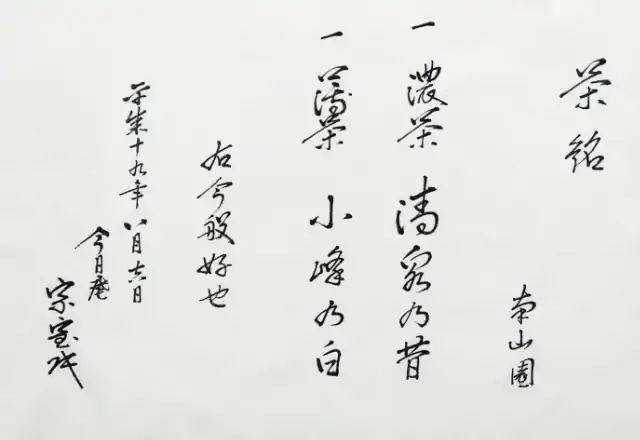 茶銘
南山園
一 濃茶 清泉乃昔
一 薄茶 小峰乃白
右今般好也
平成十九年八月十六日
今日庵
宗室